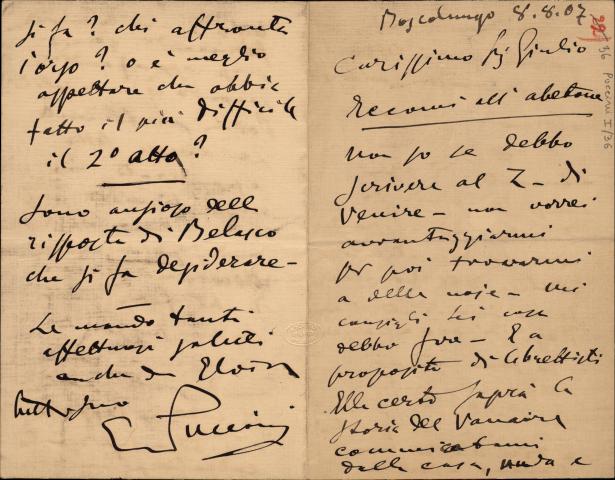 Boscolungo 8.8.07
Carissimo Sig Giulio
Eccomi all'abetone
non so se debbo
scrivere al Z - di
venire - non vorrei
avvantaggiarmi
per poi trovarmi
a delle noje - mi
consigli Lei cosa
debbo fare - E a
proposito di librettisti
Elle certo saprà la
storia del Vanaire
communicatami
dalla casa, muda e
si fa? chi affronta
l'orso? o è meglio
aspettare che abbia
fatto il più difficile
il 2º atto?
Sono ansioso della
risposta di Belasco
che si fa desiderare -
Le mando tanti
affettuosi saluti
anche da Elvira
tutto suo
G Puccini
22/36
Puccini I/36